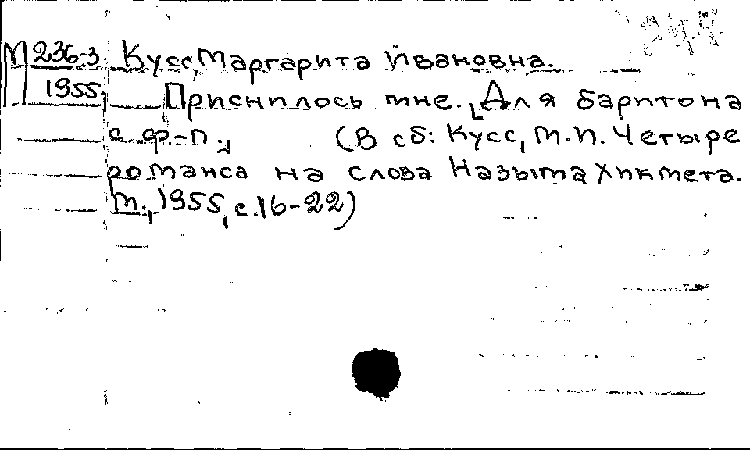 М 236-3 Кусс, Маргарита Ивановна.
1955 Приснилось мне. [Для баритона
с ф.-п.] (В сб: Кусс, М.И. Четыре
романса на слова Назыма Хикмета.
М., 1955, с.16-22)